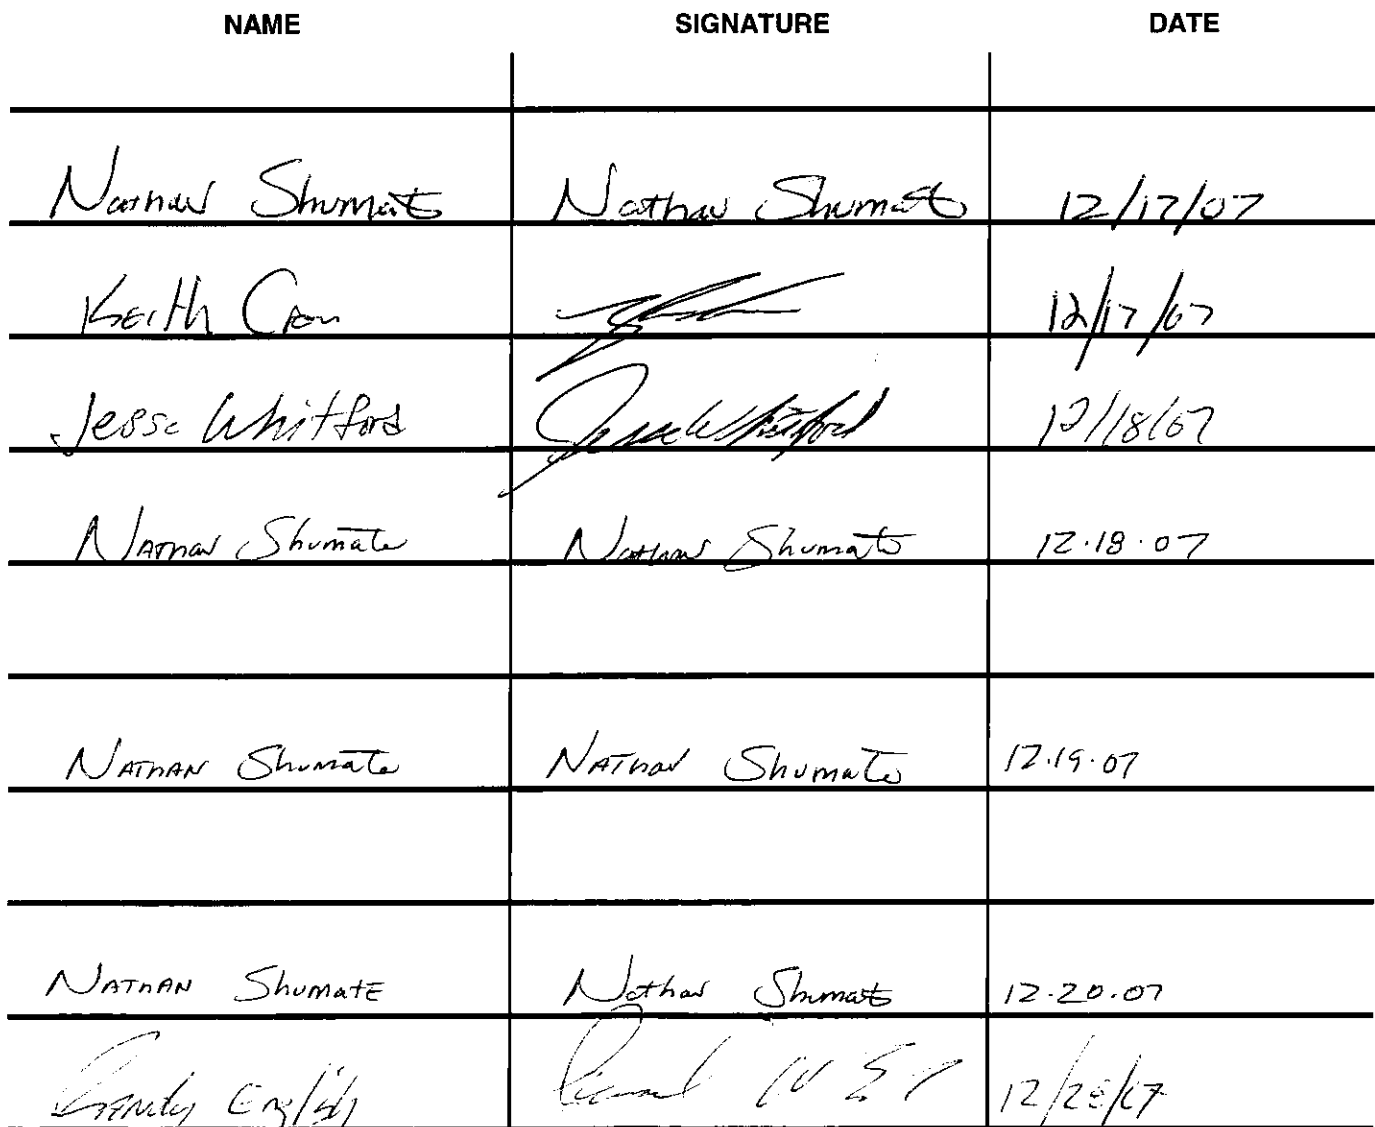 NAME SIGNATURE DATE
Nathan Shumate Nathan Shumate 12/17/07
Keith 12/17/07
Jesse Whitford Jesse Whitford 12/18/07
Nathan Shumate Nathan Shumate 12.18.07
NATHAN Shumate NATHAN Shumate 12.19.07
NATHAN SHUMATE Nathan Shumate 12.20.07
Randy English